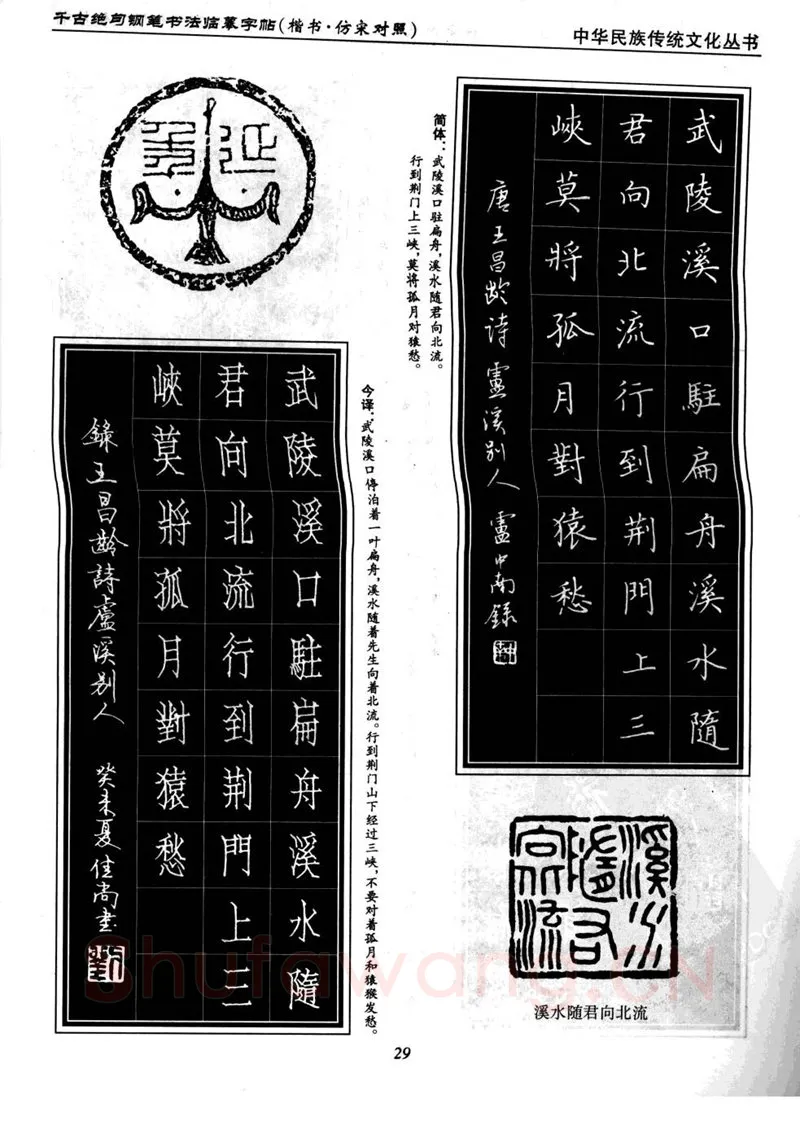 千古绝句钢笔书法临摹字帖(楷书·仿宋对照)
中华民族传统文化丛书
武陵溪口駐扁舟溪水隨
君向北流行到荆門上三
峽莫將孤月對猿愁
唐王昌龄诗盧溪别人 盧中南録
简体:武陵溪口驻扁舟,溪水随君向北流。
行到荆门上三峡,莫将孤月对猿愁。
今译:武陵溪口停泊着一叶扁舟,溪水随着先生向着北流。行到荆门山下经过三峡,不要对着孤月和猿猴发愁。
武陵溪口駐扁舟溪水隨
君向北流行到荆門上三
峽莫將孤月對猿愁
録王昌齡詩盧溪别人 癸未夏佳尚書
劉
溪水隨君向北流
溪水随君向北流
29
Shufawang.CN